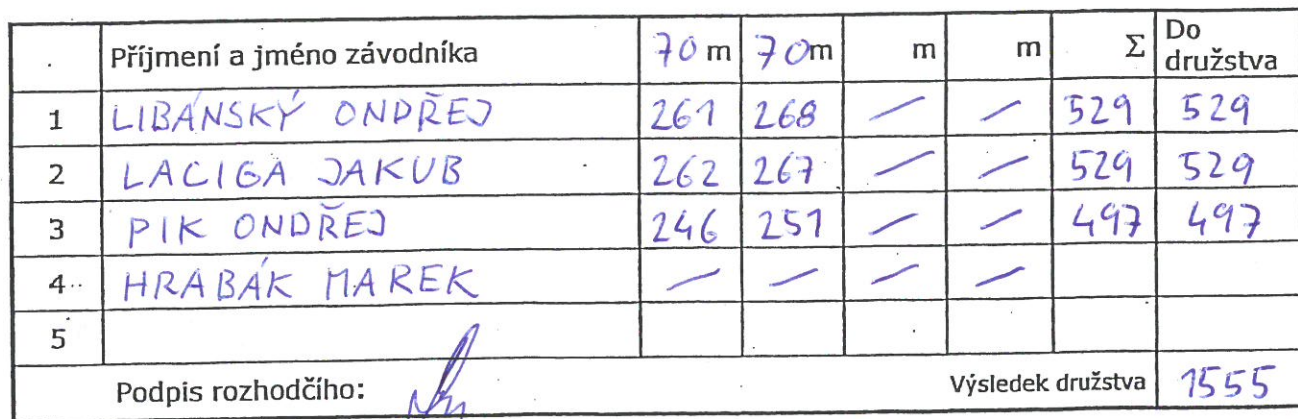 Příjmení a jméno závodníka 70 m 70m m m Σ Do družstva
1 LIBÁNSKÝ ONDŘEJ 261 268 — — 529 529
2 LACIGA JAKUB 262 267 — — 529 529
3 PIK ONDŘEJ 246 251 — — 497 497
4 HRABÁK MAREK — — — —
5
Podpis rozhodčího: Výsledek družstva 1555